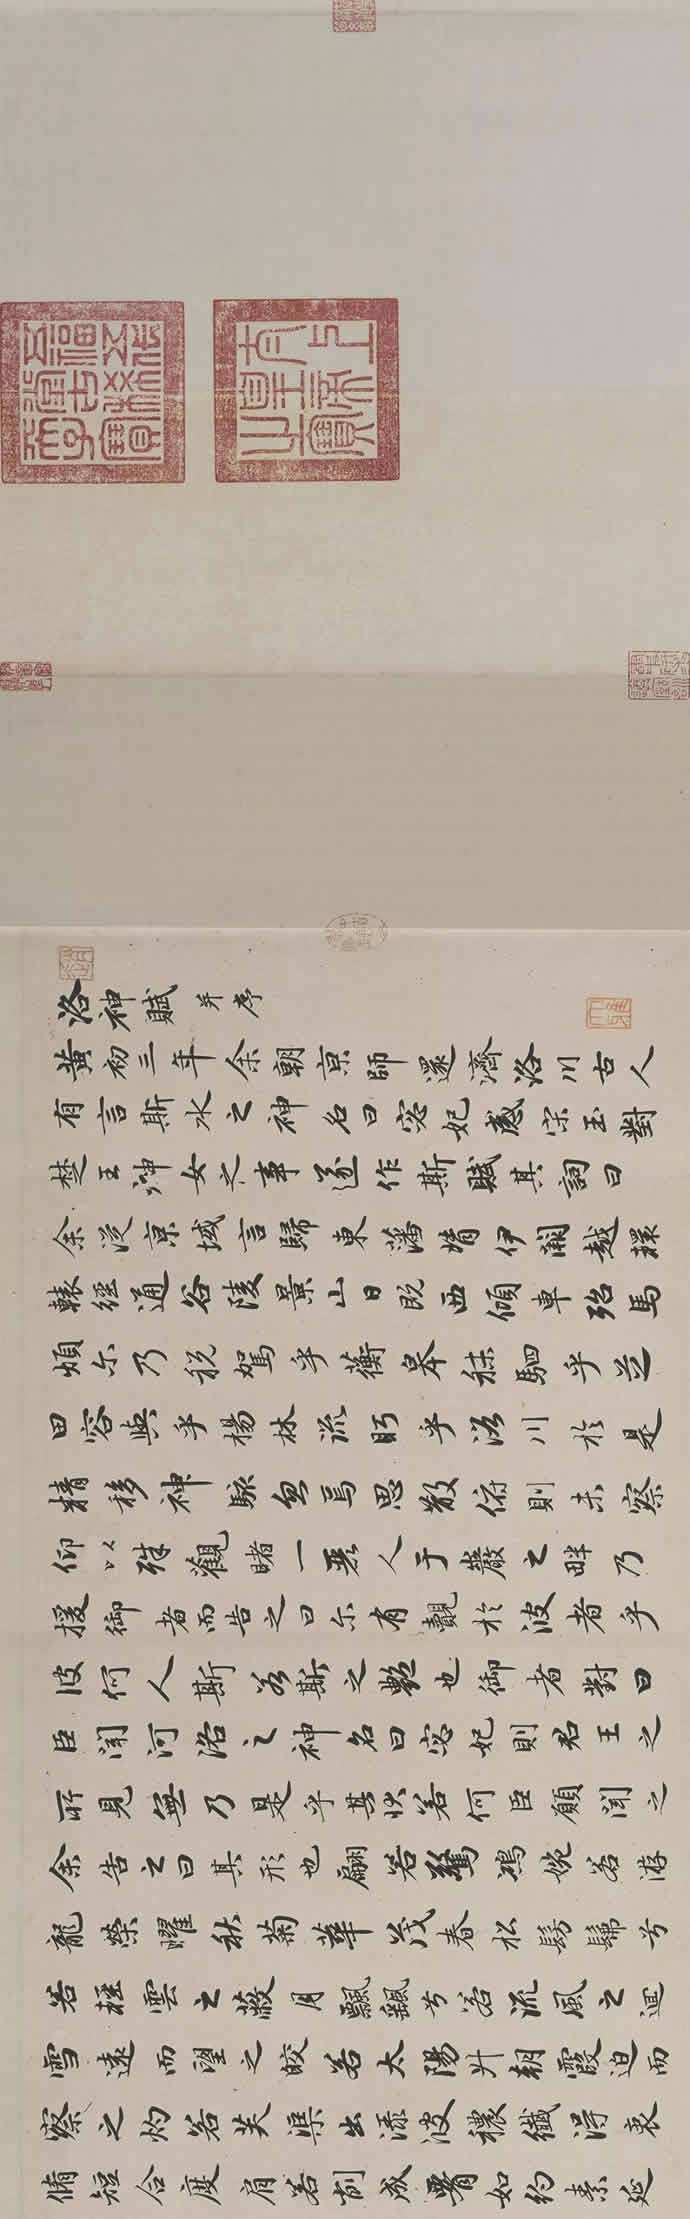 五福五代堂古稀天子寶
太上皇帝之寶
洛神賦并序
黃初三年余朝京師還濟洛川古人
有言斯水之神名曰宓妃感宋玉對
楚王神女之事遂作斯賦其詞曰
余從京域言歸東藩背伊闕越轘
轅經通谷陵景山日既西傾車殆馬
煩尔乃稅駕乎蘅皋秣駟乎芝
田容與乎楊林流眄乎洛川於是
精移神駭忽焉思散俯則未察
仰以殊觀睹一麗人于巖之畔乃
援御者而告之曰尔有覿於彼者乎
彼何人斯若斯之艷也御者對曰
臣聞河洛之神名曰宓妃則君王之
所見無乃是乎其狀若何臣願聞之
余告之曰其形也翩若驚鴻婉若游
龍榮曜秋菊華茂春松髣髴兮
若輕雲之蔽月飄颻兮若流風之迴
雪遠而望之皎若太陽升朝霞迫而
察之灼若芙蕖出淥波穠纖得衷
脩短合度肩若削成腰如約素延